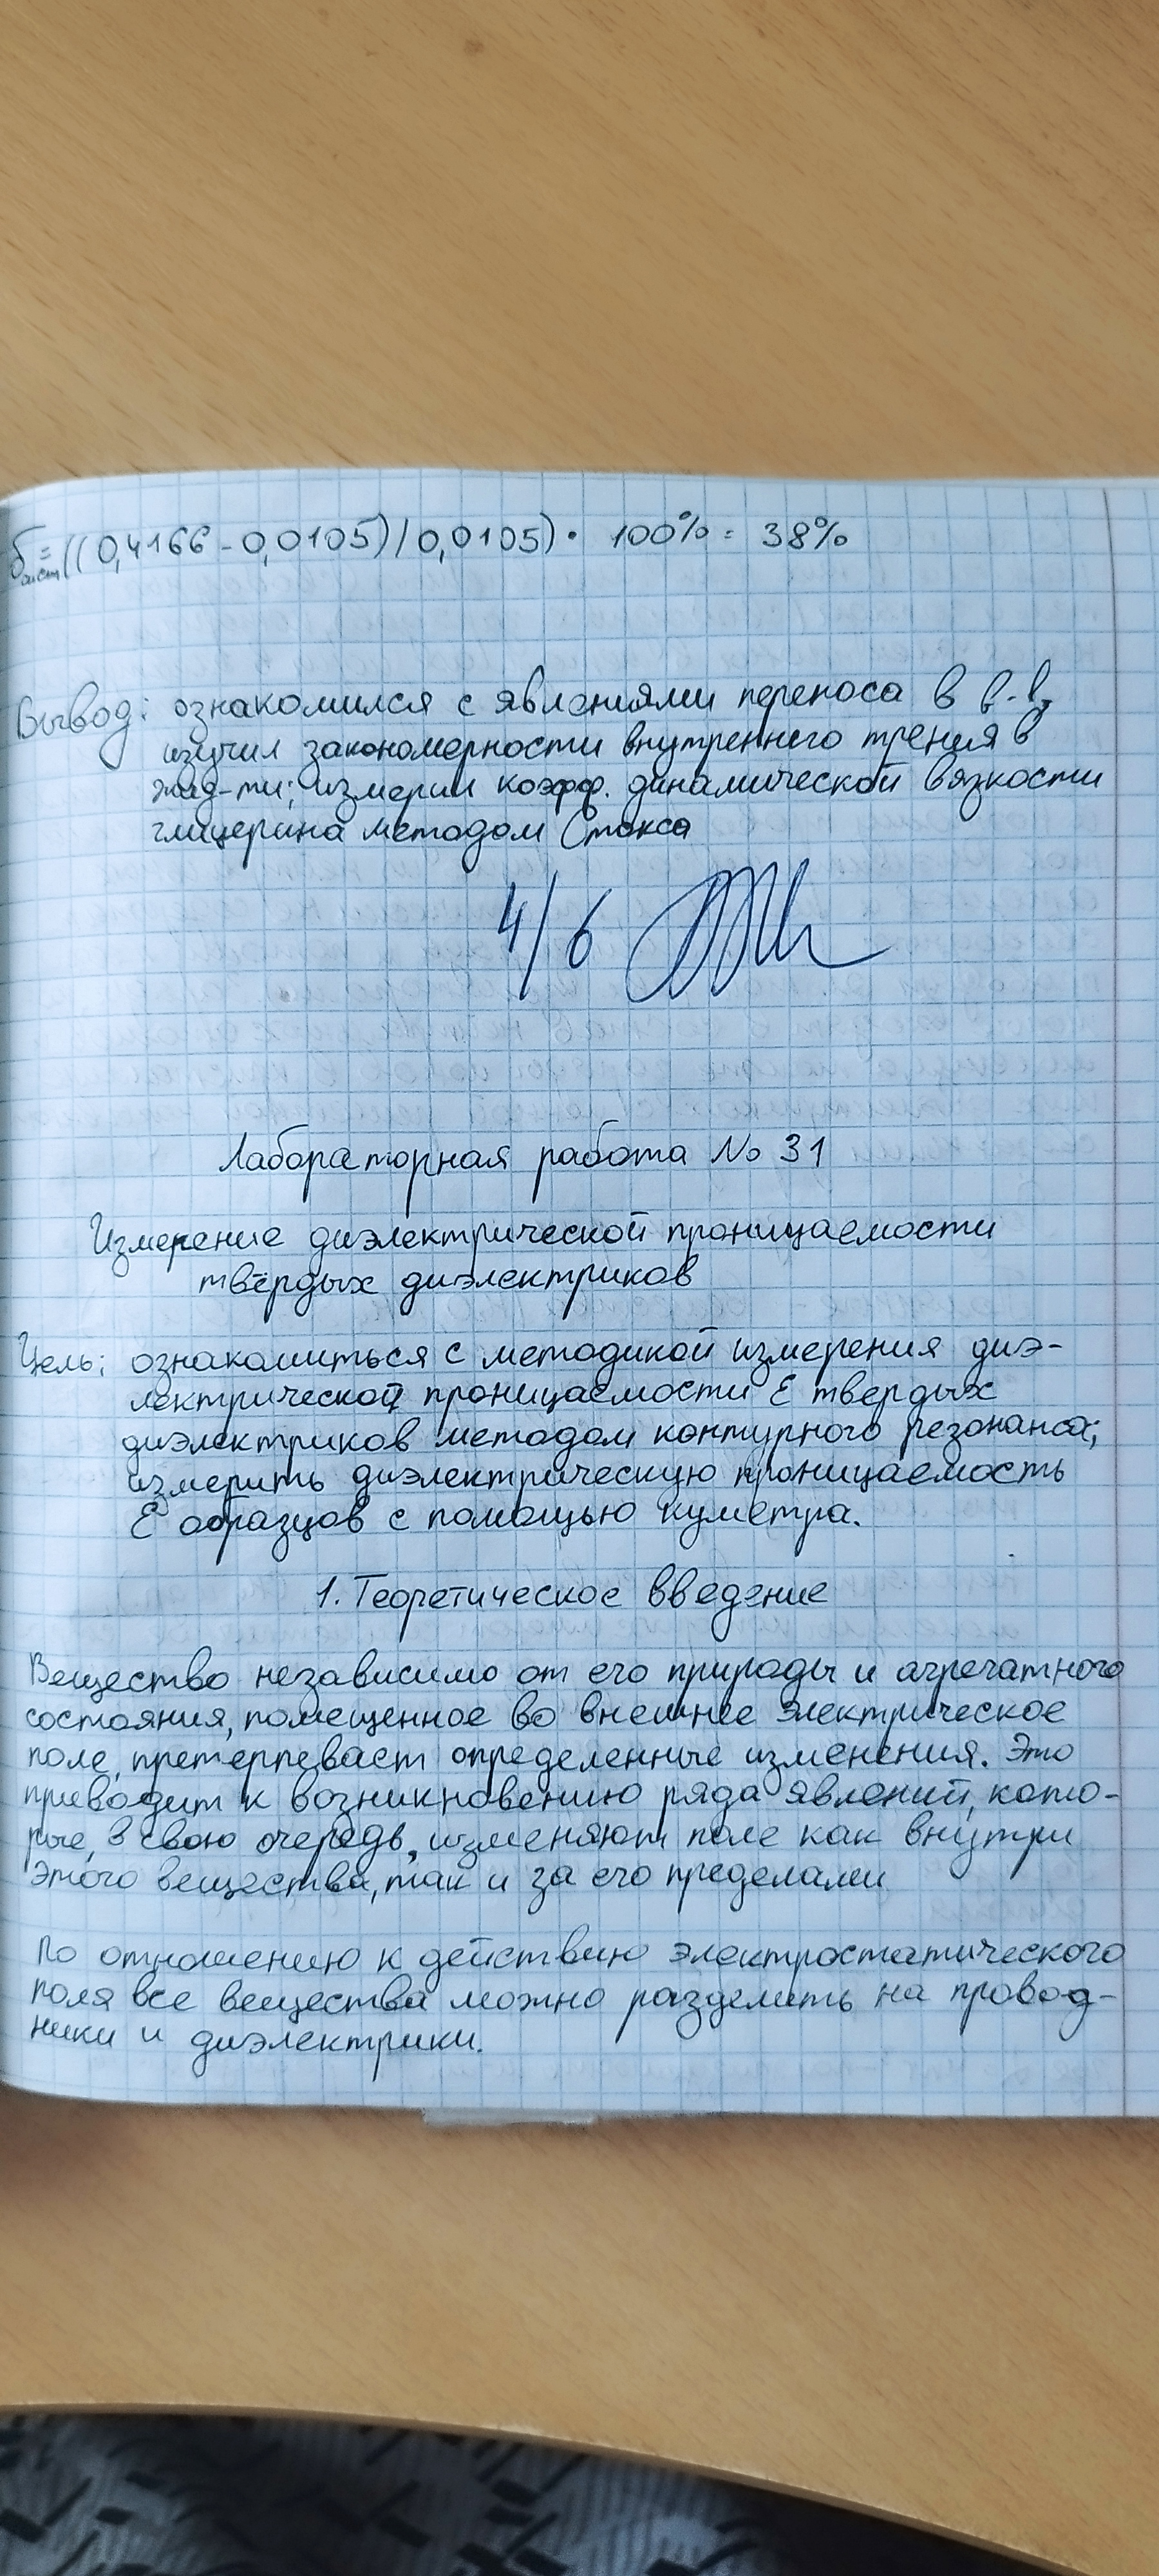 δсист=((0,4166-0,0105)/0,0105)· 100% = 38%
Вывод: ознакомился с явлениями переноса в в-в,
изучил закономерности внутреннего трения в
жид-ти; измерил коэфф. динамической вязкости
глицерина методом Стокса
4/6
Лабораторная работа № 31
Измерение диэлектрической проницаемости
твёрдых диэлектриков
Цель: ознакомиться с методикой измерения диэ-
лектрической проницаемости ε твердых
диэлектриков методом контурного резонанса;
измерить диэлектрическую проницаемость
ε образцов с помощью куметра.
1. Теоретическое введение
Вещество независимо от его природы и агрегатного
состояния, помещенное во внешнее электрическое
поле, претерпевает определенные изменения. Это
приводит к возникновению ряда явлений, кото-
рые, в свою очередь, изменяют поле как внутри
этого вещества, так и за его пределами
По отношению к действию электростатического
поля все вещества можно разделить на провод-
ники и диэлектрики.